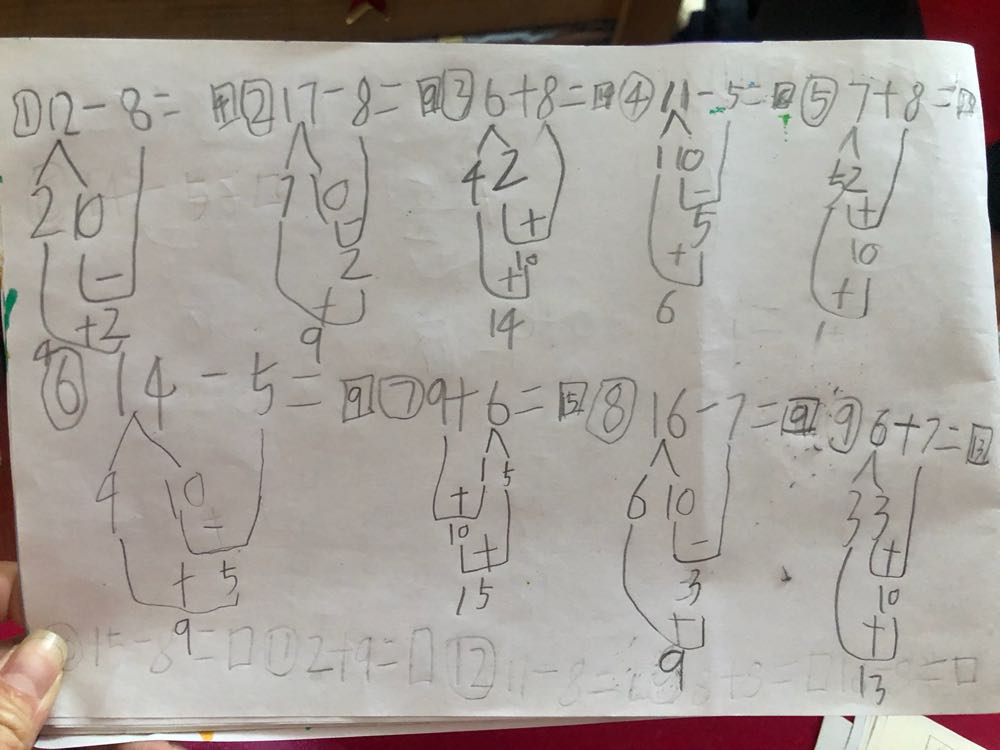 ① 12-8=4 ② 17-8=9 ③ 6+8=14 ④ 11-5= ⑤ 7+8=
2 10 7 10 4 2 1 10 5 2
- - + - +
2 10 5 10
+2 + + + +
4 9 14 6 1
⑥ 14-5=9 ⑦ 9+6=15 ⑧ 16-7=9 ⑨ 6+7=13
4 10 1 5 6 10 3 3
- + - +
10 3 10
+ 5 + + +
9 15 9 13
15-8=□ 2+9=□ ⑫ 11-8=